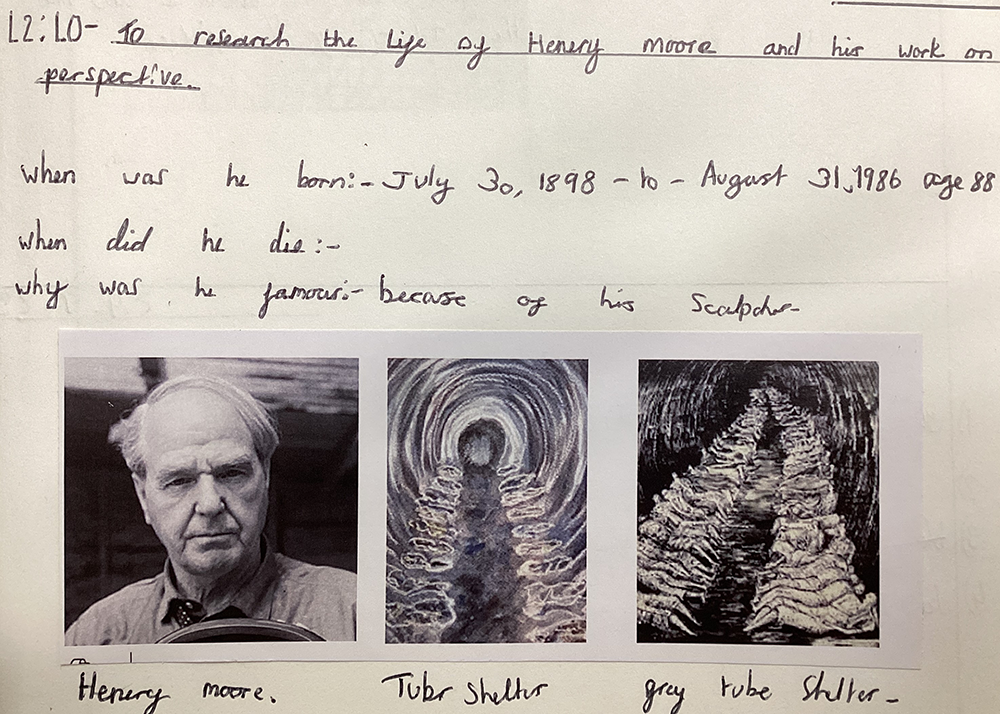 L2: LO- To research the Life of Henery moore and his work on
perspective.
when was he born:- July 30, 1898 - to - August 31, 1986 age 88
when did he die:-
why was he famous:- becase of his Scalpcher-
Henery moore. Tube Shelter grey tube Shelter-